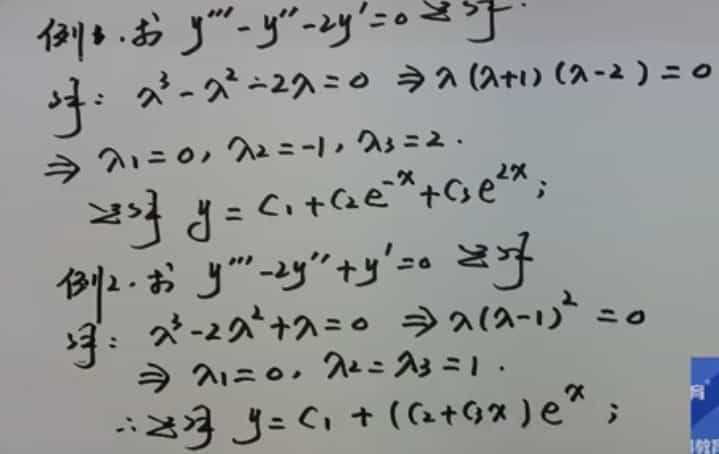 例1.求 y''' - y'' - 2y' = 0 通解.
解: λ³ - λ² - 2λ = 0 ⇒ λ(λ+1)(λ-2) = 0
⇒ λ₁ = 0, λ₂ = -1, λ₃ = 2.
通解 y = C₁ + C₂e⁻ˣ + C₃e²ˣ;
例2.求 y''' - 2y'' + y' = 0 通解
解: λ³ - 2λ² + λ = 0 ⇒ λ(λ-1)² = 0
⇒ λ₁ = 0, λ₂ = λ₃ = 1.
∴通解 y = C₁ + (C₂ + C₃x)eˣ;
育
教育